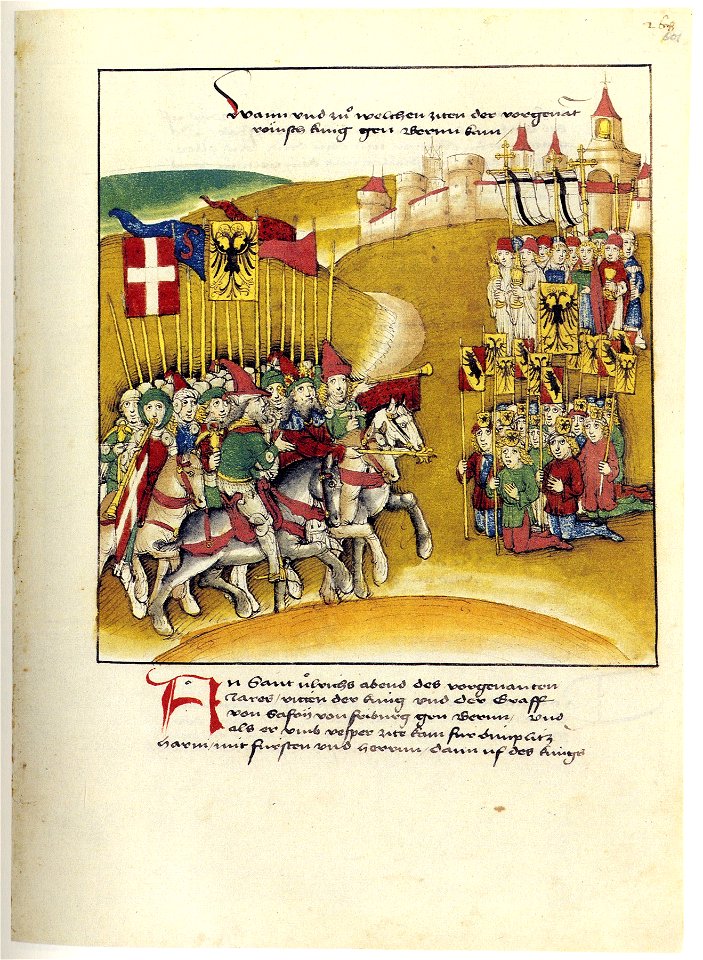 Wann und zů welchen ziten der vorgenāt
römsch kung gen Bernn kam
S
An Sant ůlrichs abend des vorgenanten
Jares / ritten der kung und der Graff
von Saffoy von friburg gen Bernn / und
als er umb vesper zite kam fur bümplitz
harin / mit fursten und herrnn / dann uf des kungs